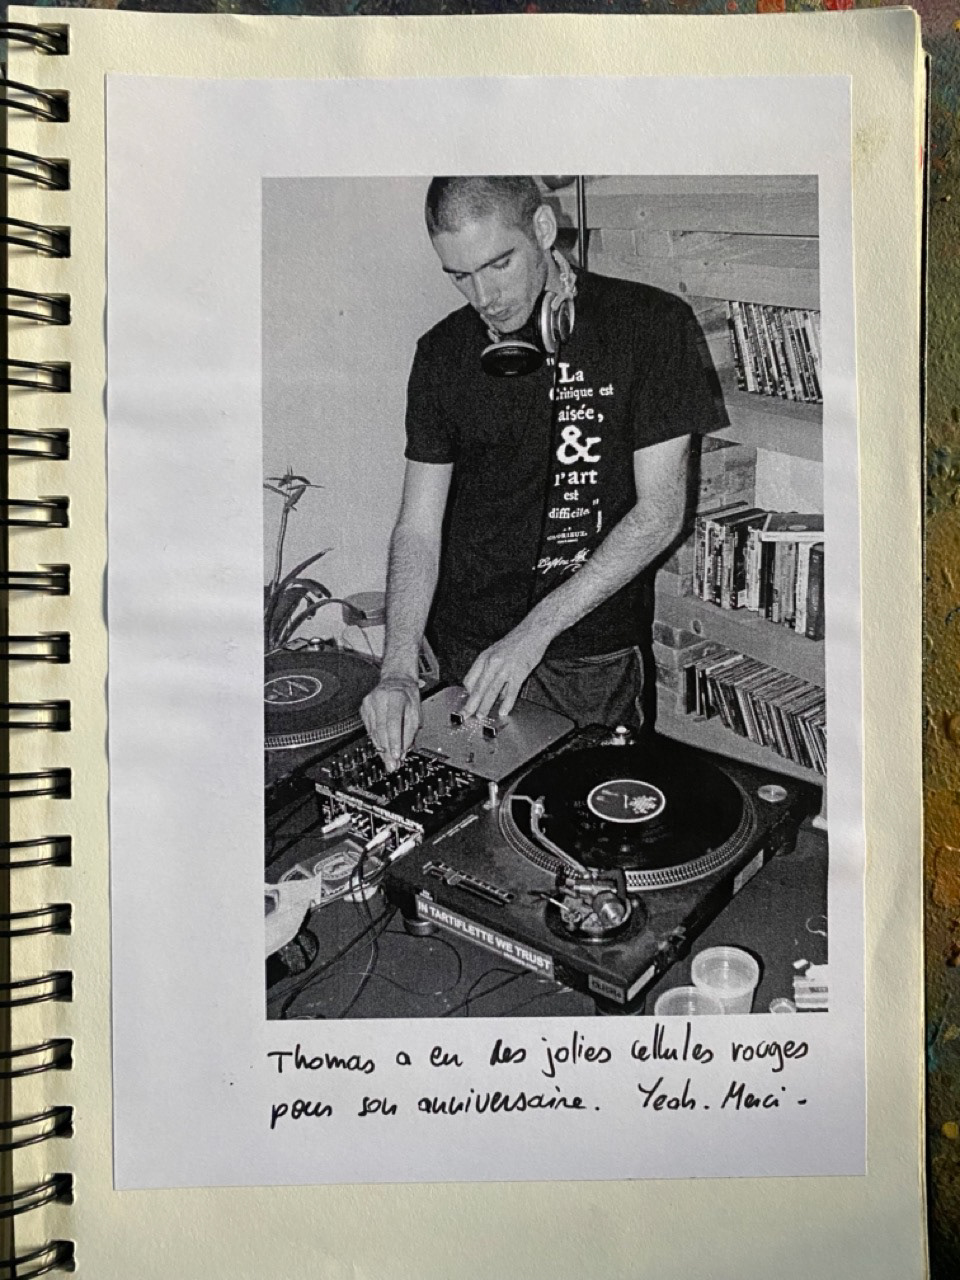 "La
Critique est
aisée,
&
l'art
est
difficile"
IN TARTIFLETTE WE TRUST
Thomas a eu des jolies cellules rouges
pour son anniversaire. Yeah. Merci -